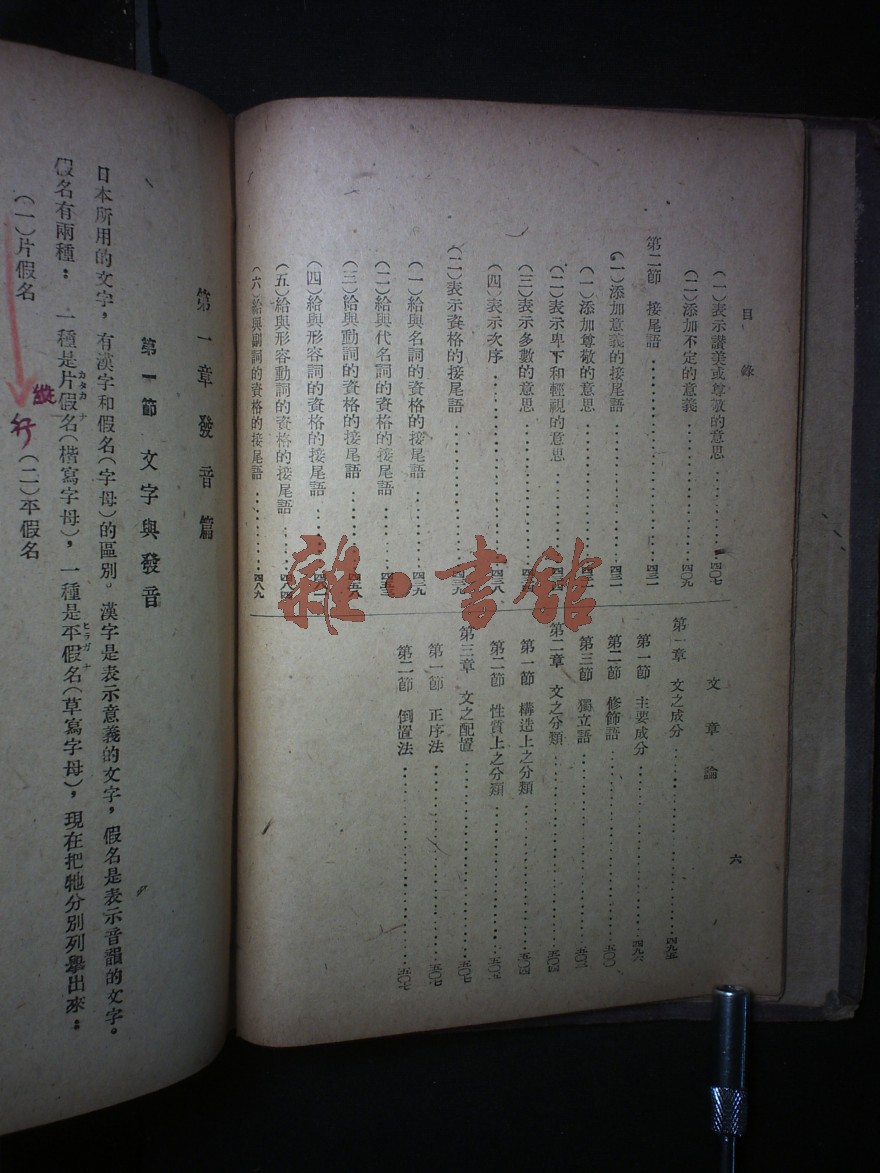 目錄
(一)表示讚美或尊敬的意思………四〇七
(二)添加不定的意義………四〇九
第二節 接尾語………四三一
(一)添加意義的接尾語………四三一
(一)添加尊敬的意思………
(二)表示卑下和輕視的意思………
(三)表示多數的意思………
(四)表示次序………四三八
(二)表示資格的接尾語………四三九
(一)給與名詞的資格的接尾語………四三九
(二)給與代名詞的資格的接尾語………
(三)給與動詞的資格的接尾語………
(四)給與形容詞的資格的接尾語………
(五)給與形容動詞的資格的接尾語………四八四
(六)給與副詞的資格的接尾語………四八九
文章論
第一章 文之成分………四九五
第一節 主要成分………四九六
第二節 修飾語………五〇〇
第三節 獨立語………五〇二
第二章 文之分類………五〇四
第一節 構造上之分類………五〇四
第二節 性質上之分類………五〇五
第三章 文之配置………五〇七
第一節 正序法………五〇七
第二節 倒置法………五〇七
六
雜·書館
第一章 發音篇
第一節 文字與發音
日本所用的文字,有漢字和假名(字母)的區別。漢字是表示意義的文字,假名是表示音韻的文字。
假名有兩種:一種是片假名(楷寫字母),一種是平假名(草寫字母),現在把牠分別列舉出來:
カタカナ
ヒラガナ
(一)片假名
縱
行
(二)平假名